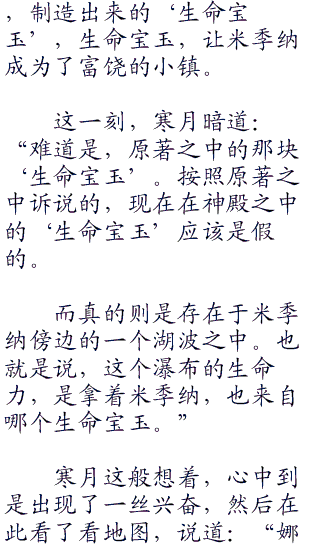 ，制造出来的‘生命宝
玉’，生命宝玉，让米季纳
成为了富饶的小镇。
这一刻，寒月暗道：
“难道是，原著之中的那块
‘生命宝玉’。按照原著之
中诉说的，现在在神殿之中
的‘生命宝玉’应该是假
的。
而真的则是存在于米季
纳傍边的一个湖波之中。也
就是说，这个瀑布的生命
力，是拿着米季纳，也来自
哪个生命宝玉。”
寒月这般想着，心中到
是出现了一丝兴奋，然后在
此看了看地图，说道：“娜